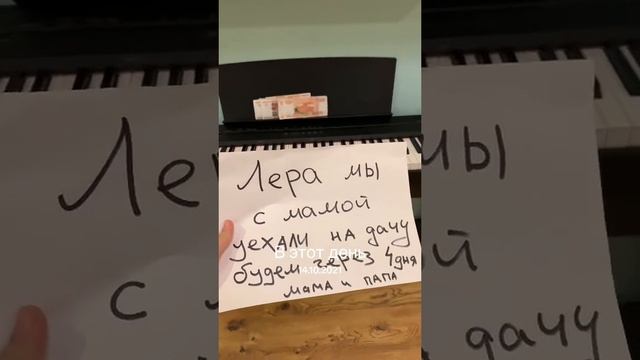 Лера мы
с мамой
уехали на дачу
будем через 4 дня
мама и папа
В этот день
14.10.2021